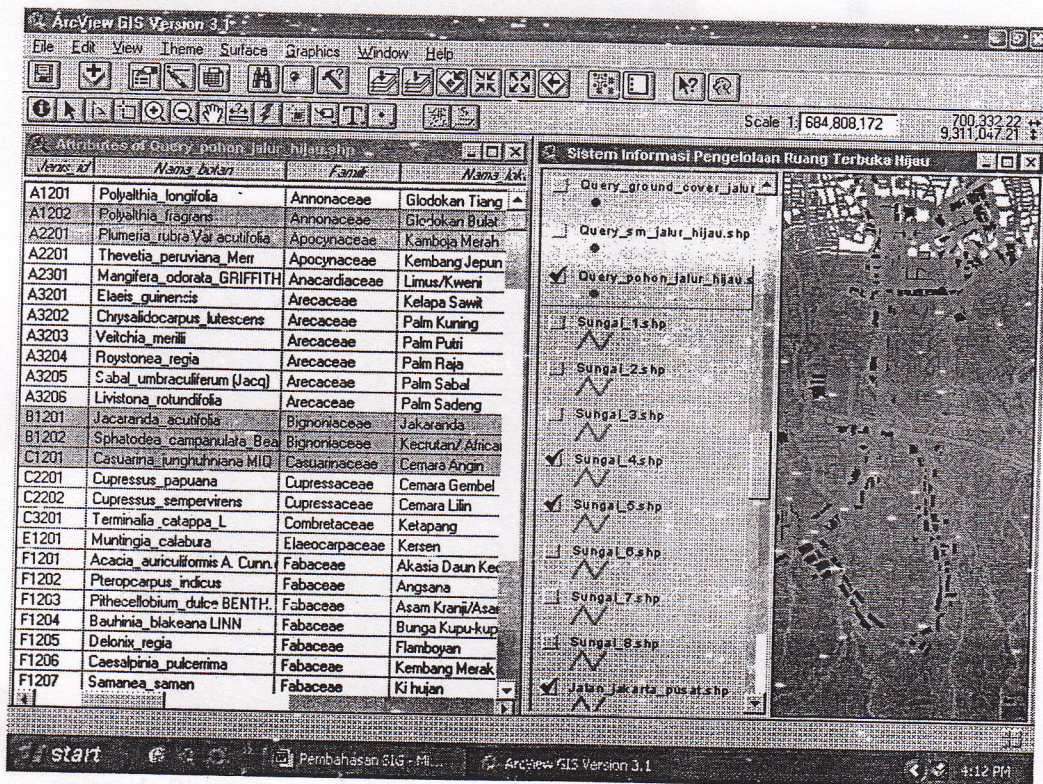 ArcView GIS Version 3.1
File Edit View Theme Surface Graphics Window Help
Scale 1: 684,808,172 700,332.22
9,311,047.21
Attributes of Query_pohon_jalur_hijau.shp
Jenis_id Nama_botan Famili
A1201 Polyalthia_longifolia Annonaceae Glodokan Tiang
A1202 Polyalthia_fragrans Annonaceae Glodokan Bulat
A2201 Plumeria_rubra Var acutifolia Apocynaceae Kamboja Merah
A2201 Thevetia_peruviana_Merr Apocynaceae Kembang Jepun
A2301 Mangifera_odorata_GRIFFITH Anacardiaceae Limus/Kweni
A3201 Elaeis_guinensis Arecaceae Kelapa Sawit
A3202 Chrysalidocarpus_lutescens Arecaceae Palm Kuning
A3203 Veitchia_merilli Arecaceae Palm Putri
A3204 Roystonea_regia Arecaceae Palm Raja
A3205 Sabal_umbraculiferum (Jacq) Arecaceae Palm Sabal
A3206 Livistona_rotundifolia Arecaceae Palm Sadeng
B1201 Jacaranda_acutifolia Bignoniaceae Jakaranda
B1202 Sphatodea_campanulata Bea Bignoniaceae Kecrutan/ Africa
C1201 Casuarina_junghuhniana MIQ Casuarinaceae Cemara Angin
C2201 Cupressus_papuana Cupressaceae Cemara Gembel
C2202 Cupressus_sempervirens Cupressaceae Cemara Lilin
C3201 Terminalia_catappa_L Combretaceae Ketapang
E1201 Muntingia_calabura Elaeocarpaceae Kersen
F1201 Acacia_auriculiformis A. Cunn. Fabaceae Akasia Daun Kec
F1202 Pteropcarpus_indicus Fabaceae Angsana
F1203 Pithecellobium_dulce BENTH. Fabaceae Asam Kranji/Asar
F1204 Bauhinia_blakeana LINN Fabaceae Bunga Kupu-kup
F1205 Delonix_regia Fabaceae Flamboyan
F1206 Caesalpinia_pulcerrima Fabaceae Kembang Merak
F1207 Samanea_saman Fabaceae Ki hujan
Sistem Informasi Pengelolaan Ruang Terbuka Hijau
Query_ground_cover_jalur
Query_sm_jalur_hijau.shp
Query_pohon_jalur_hijau.s
Sungai_1.shp
Sungai_2.shp
Sungai_3.shp
Sungai_4.shp
Sungai_5.shp
Sungai_6.shp
Sungai_7.shp
Sungai_8.shp
Jalan_jakarta_pusat.shp
start Pembahasan SIG - Mi... ArcView GIS Version 3.1 4:12 PM